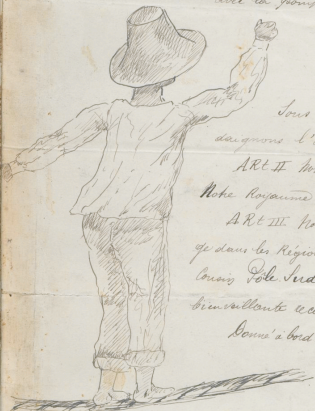 avec la
Sous
daignons l'
ARt II
Notre Royaume
ARt III. No
ge dans les Région
Cousin Pôle Sud
bienveillante
Donné à bord